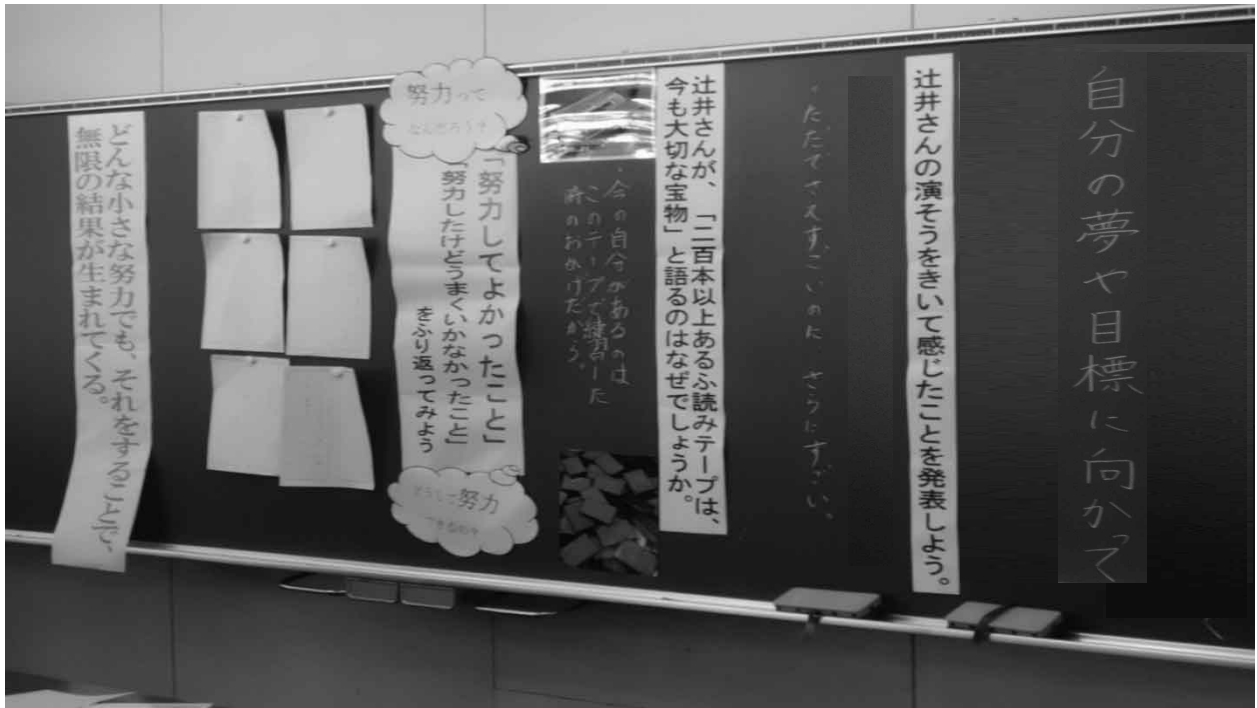 自分の夢や目標に向かって
辻井さんの演そうをきいて感じたことを発表しよう。
・ただでさえすごいのに、さらにすごい。
辻井さんが、「二百本以上あるふ読みテープは、
今も大切な宝物」と語るのはなぜでしょうか。
・今の自分があるのは
このテープで練習した
時のおかげだから。
努力って
なんだろう?
「努力してよかったこと」
「努力したけどうまくいかなかったこと」
をふり返ってみよう
どうして努力
できるの?
どんな小さな努力でも、それをすることで、
無限の結果が生まれてくる。